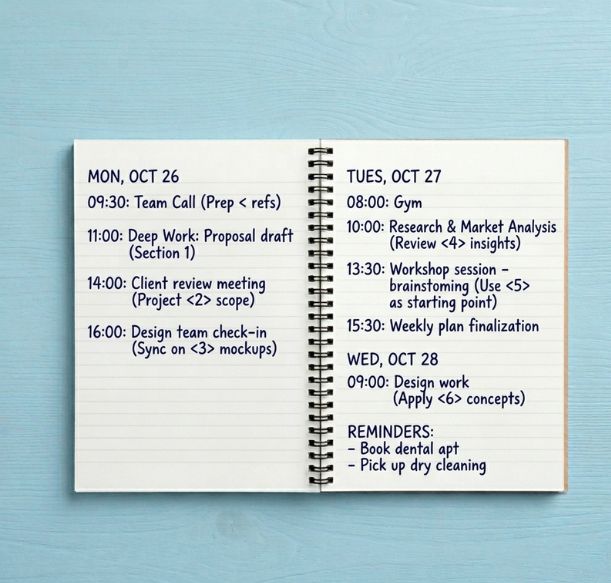 MON, OCT 26
09:30: Team Call (Prep < refs)
11:00: Deep Work: Proposal draft
(Section 1)
14:00: Client review meeting
(Project <2> scope)
16:00: Design team check-in
(Sync on <3> mockups)
TUES, OCT 27
08:00: Gym
10:00: Research & Market Analysis
(Review <4> insights)
13:30: Workshop session –
brainstoming (Use <5>
as starting point)
15:30: Weekly plan finalization
WED, OCT 28
09:00: Design work
(Apply <6> concepts)
REMINDERS:
– Book dental apt
– Pick up dry cleaning